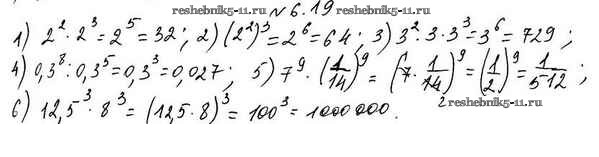 reshebnik5-11.ru № 6.19
1) 2² · 2³ = 2⁵ = 32; 2) (2²)³ = 2⁶ = 64; 3) 3² · 3 · 3³ = 3⁶ = 729;
4) 0,3⁸ : 0,3⁵ = 0,3³ = 0,027; 5) 7⁹ · (1/14)⁹ = (7 · 1/14)⁹ = (1/2)⁹ = 1/512;
6) 12,5³ · 8³ = (12,5 · 8)³ = 100³ = 1000000. 2
reshebnik5-11.ru